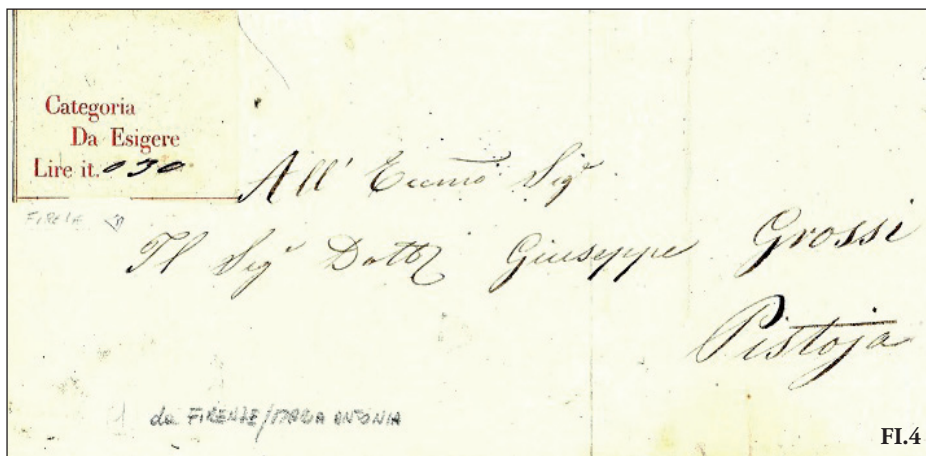 Categoria
Da Esigere
Lire it. 030
All' Eccmo Sigr
Il Sigr Dottr Giuseppe Grossi
Pistoja
da FIRENZE/MARIA ANTONIA
FI.4